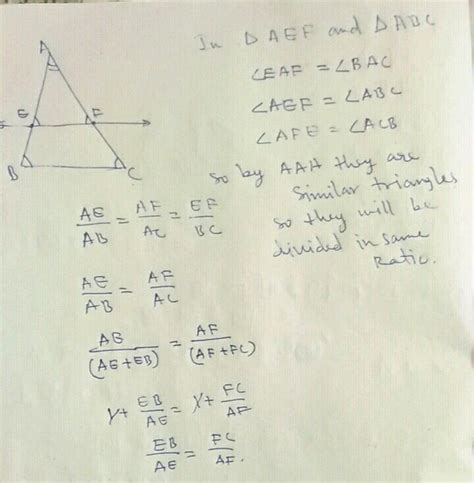 A
E F
B C
In △AEF and △ABC
∠EAF = ∠BAC
∠AEF = ∠ABC
∠AFE = ∠ACB
so by AAA they are
similar triangles
so they will be
divided in same
ratio.
AE/AB = AF/AC = EF/BC
AE/AB = AF/AC
AE/(AE+EB) = AF/(AF+FC)
1 + EB/AE = 1 + FC/AF
EB/AE = FC/AF.